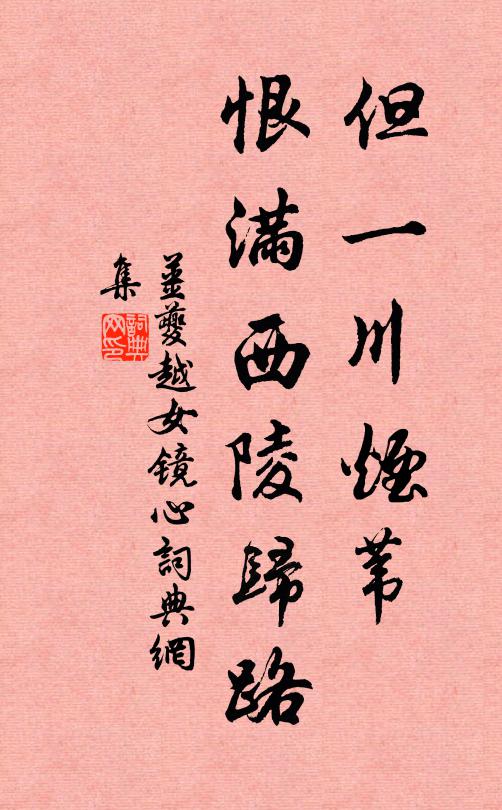 但一川煙苇
恨满西陵歸路
姜夔越女镜心詞典網
集
詞典网印